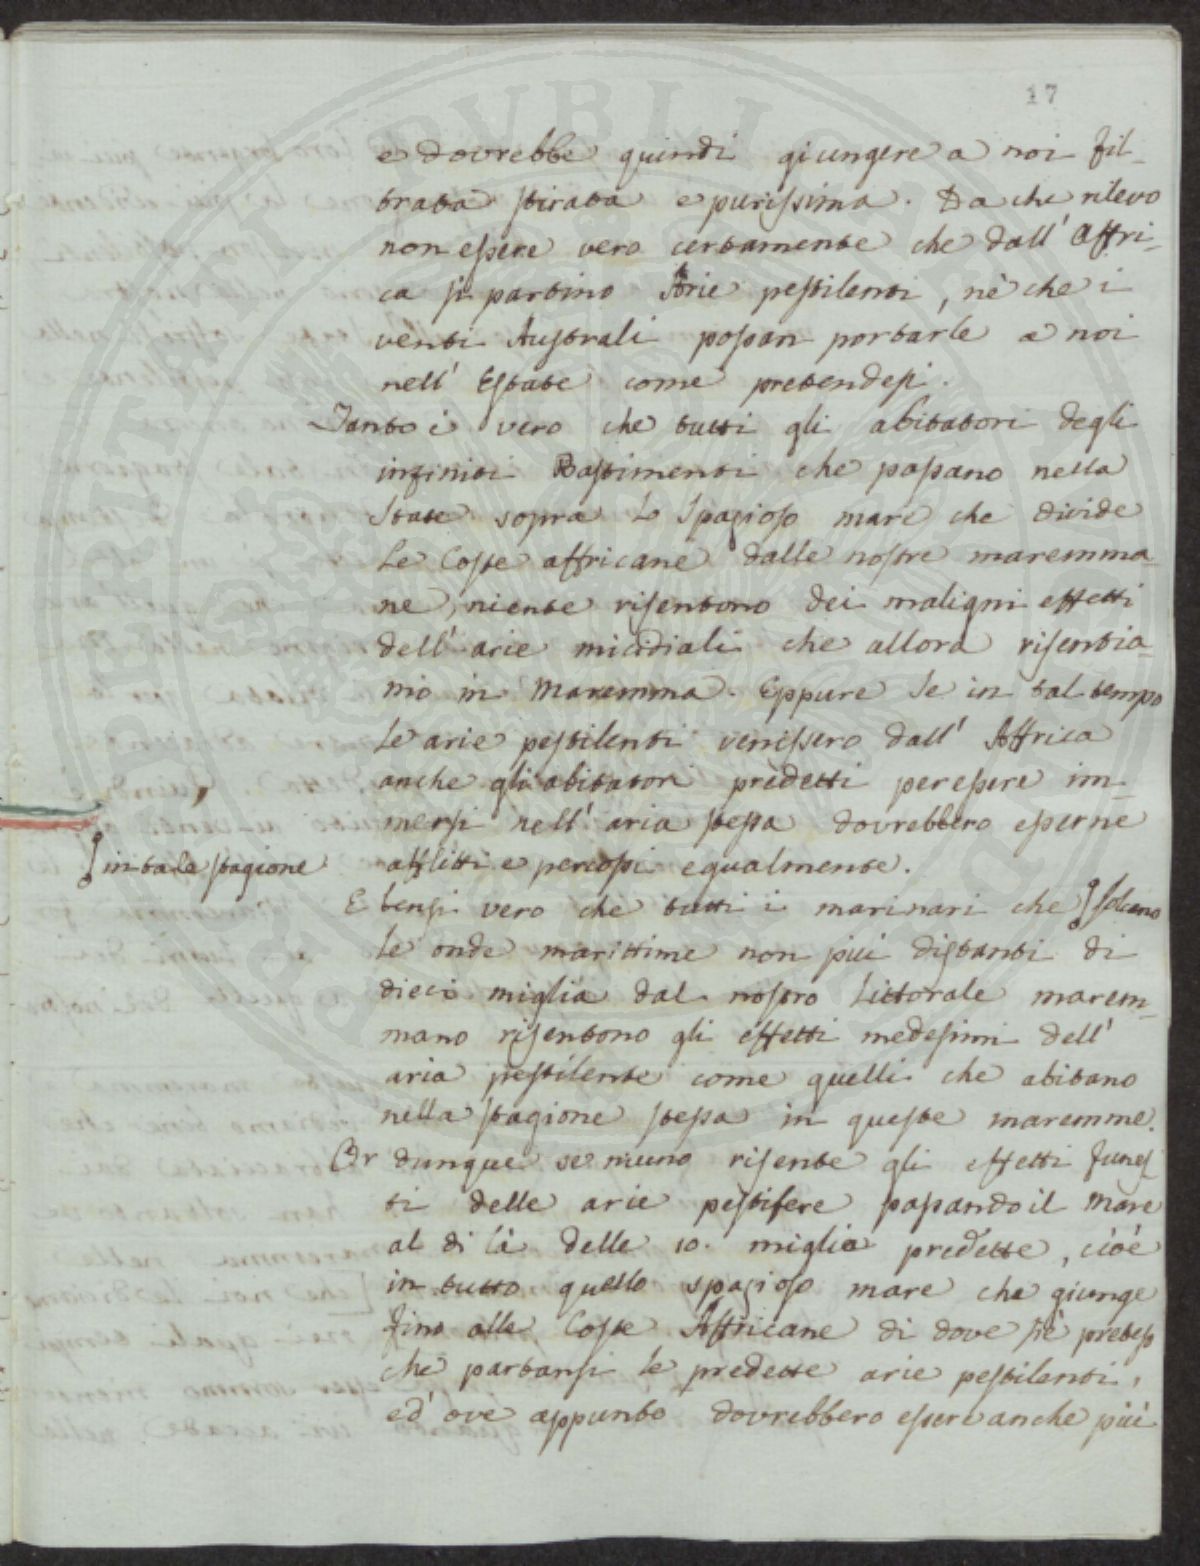 17
e dovrebbe quindi giungere a noi fil-
trata stirata e purissima. Da che rilevo
non essere vero certamente che dall' Affri-
ca si partino Arie pestilenti, nè che i
venti Australi possan portarle a noi
nell' Estate come pretendesi.
Tanto è vero che tutti gli abitatori degli
infiniti Bastimenti che passano nella
State sopra lo Spazioso mare che divide
le Coste affricane dalle nostre maremma-
ne, niente risentono dei maligni effetti
dell' arie micidiali che allora risentia-
mo in Maremma. Eppure se in tal tempo
le arie pestilenti venissero dall' Affrica
anche gli abitatori predetti per essere im-
mersi nell' aria stessa dovrebbero esserne
afflitti e percossi egualmente.
in tale stagione
E bensi vero che tutti i marinari che solcano
le onde marittime non più distanti di
dieci miglia dal nostro Littorale marem-
mano risentono gli effetti medesimi dell'
aria pestilente come quelli che abitano
nella stagione stessa in queste maremme.
Or dunque se niuno risente gli effetti funes
ti delle arie pestifere passando il Mare
al di là delle 10. miglia predette, cioè
in tutto quello spazioso mare che giunge
fino alle Coste Affricane di dove si è preteso
che partansi le predette arie pestilenti,
ed' ove appunto dovrebbero essere anche più